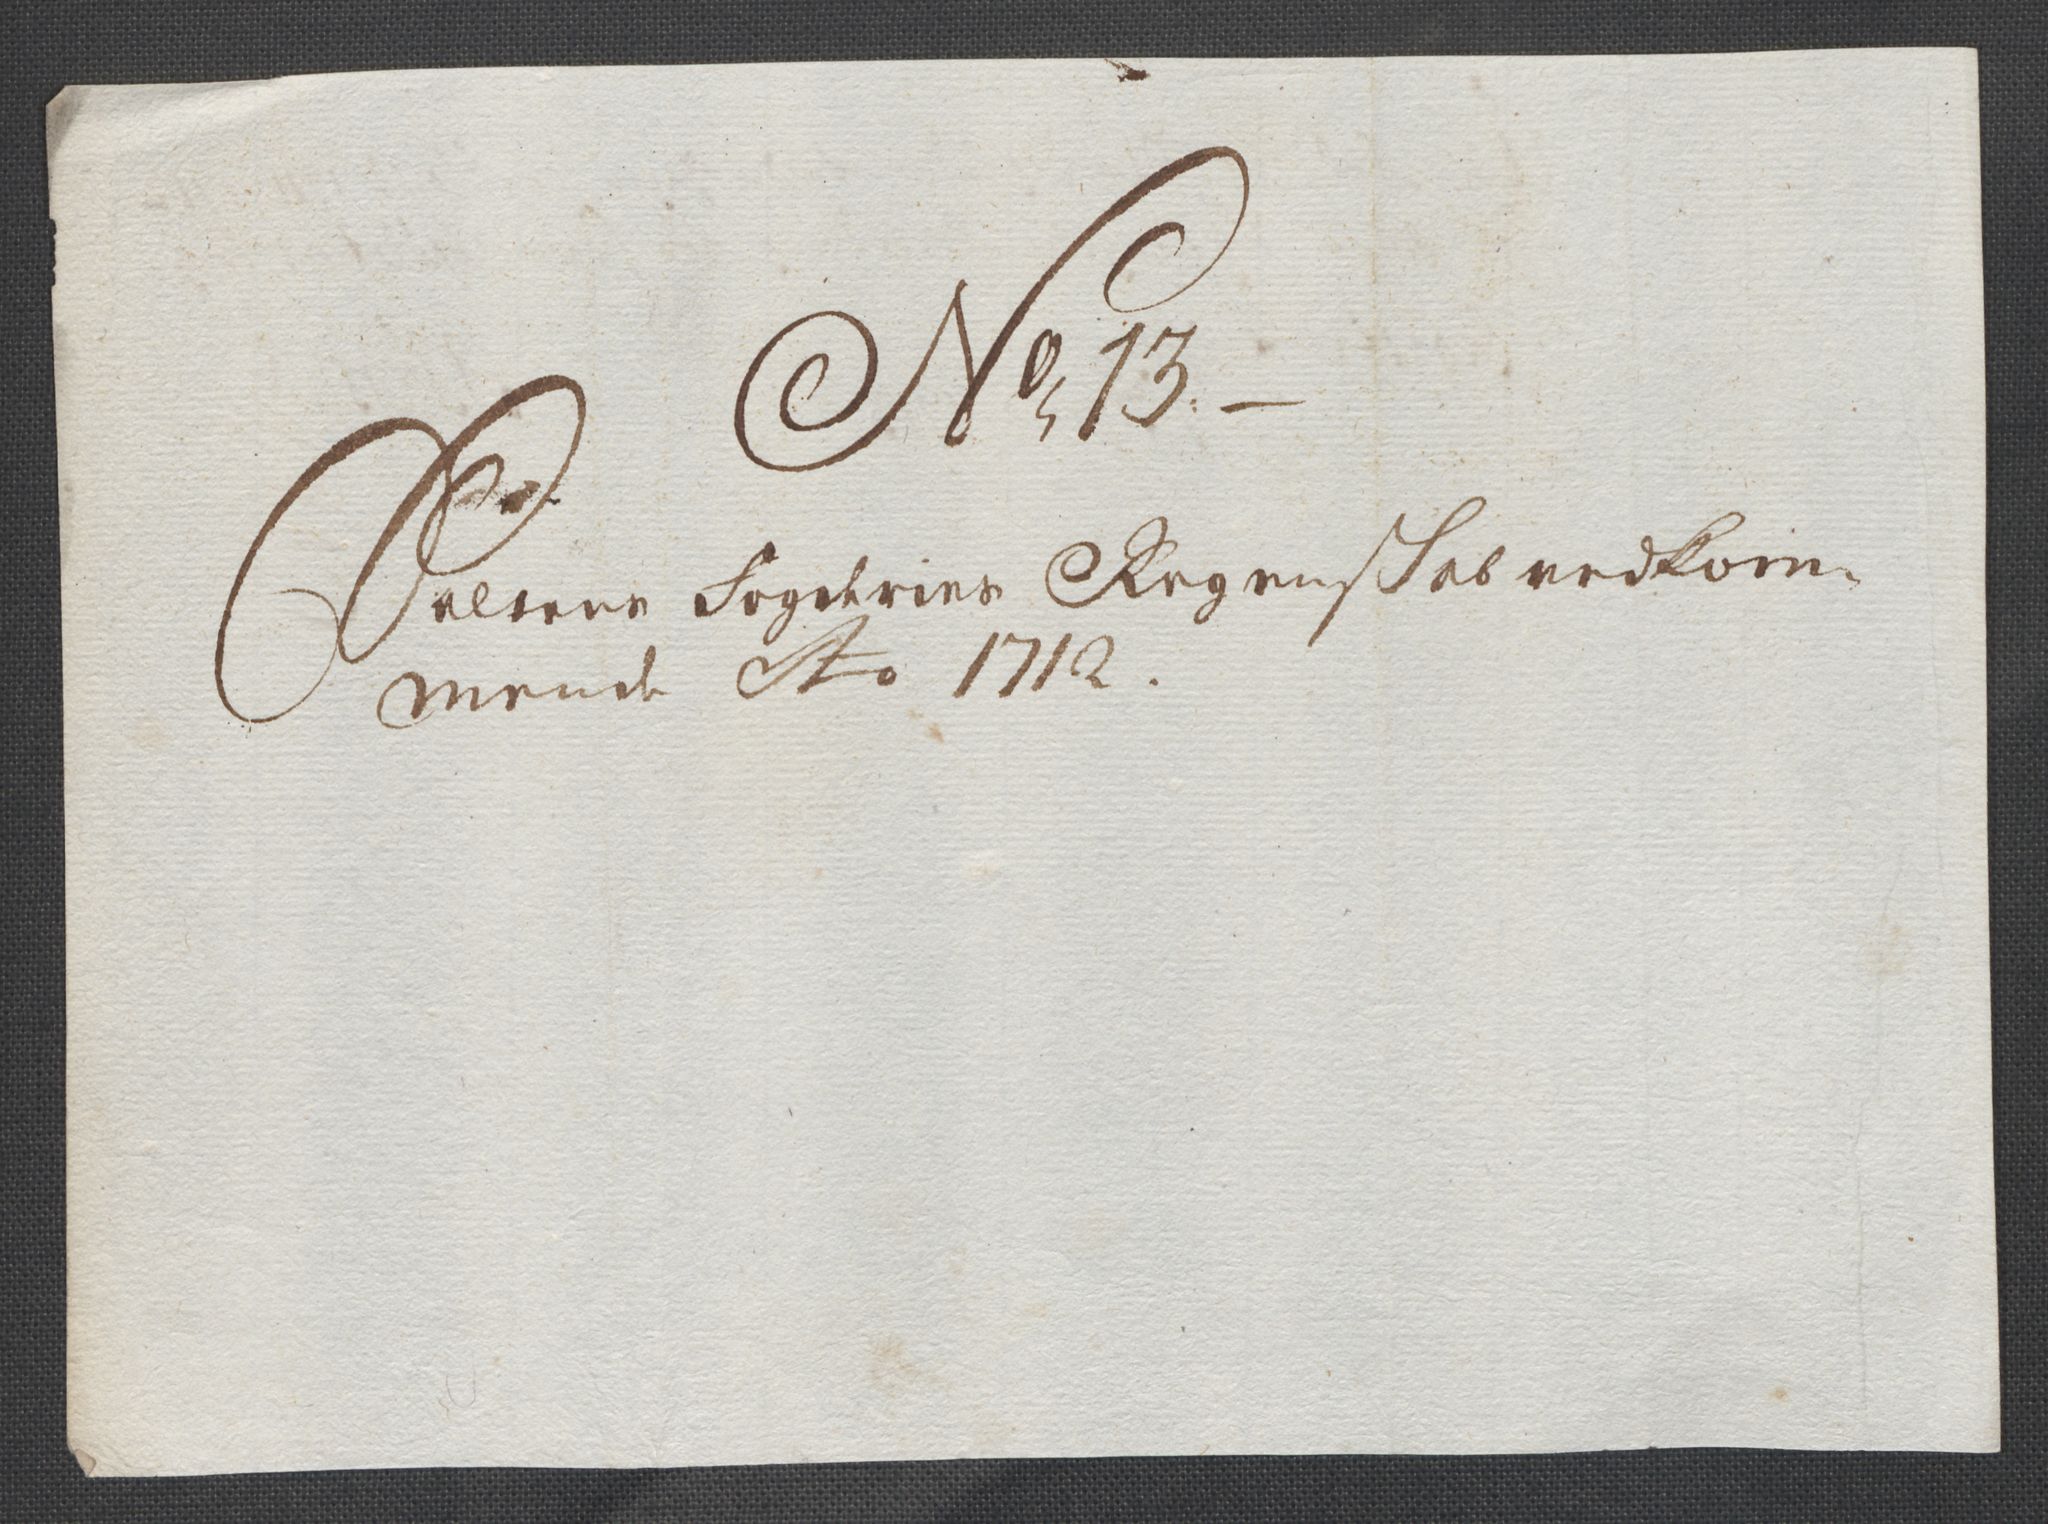 No, 13. —
Saltens Fogderies Regenskab vedkom-
mende Ao 1712.